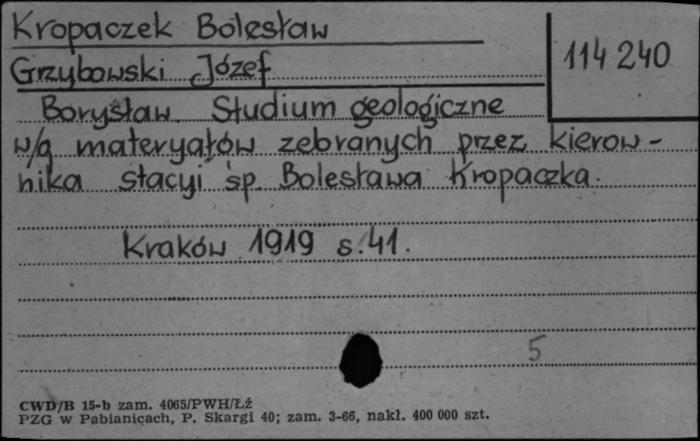 Kropaczek Bolesław
114 240
Grzybowski Józef
Borysław. Studium geologiczne
w/g materyałów zebranych przez kierow-
nika stacyi śp. Bolesława Kropaczka.
Kraków 1919 s. 41.
5
CWD/B 15-b zam. 4065/PWH/Łź
PZG w Pabianicach, P. Skargi 40; zam. 3-66, nakł. 400 000 szt.